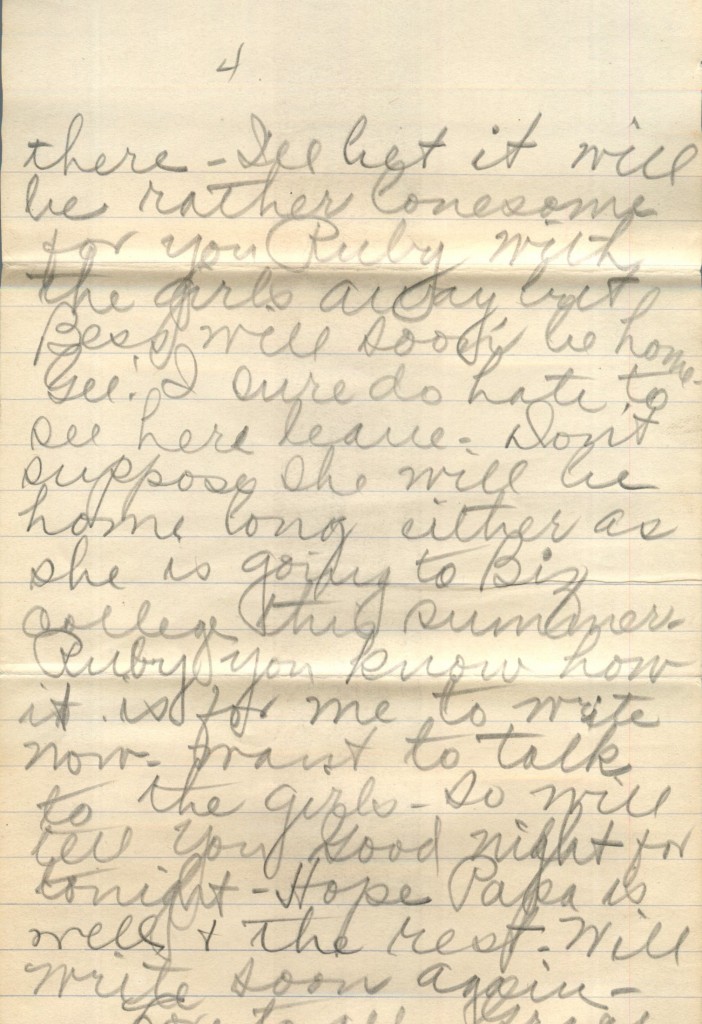 4
there - I'll bet it will
be rather lonesome
for you Ruby with
the girls away but
Bess will soon be home.
Gee! I sure do hate to
see here leave. Don't
suppose she will be
home long either as
she is going to Biz
college this summer.
Ruby you know how
it is for me to write
now - want to talk
to the girls - So will
tell you good night for
tonight - Hope Papa is
well & the rest - Will
write soon again -
Love to all